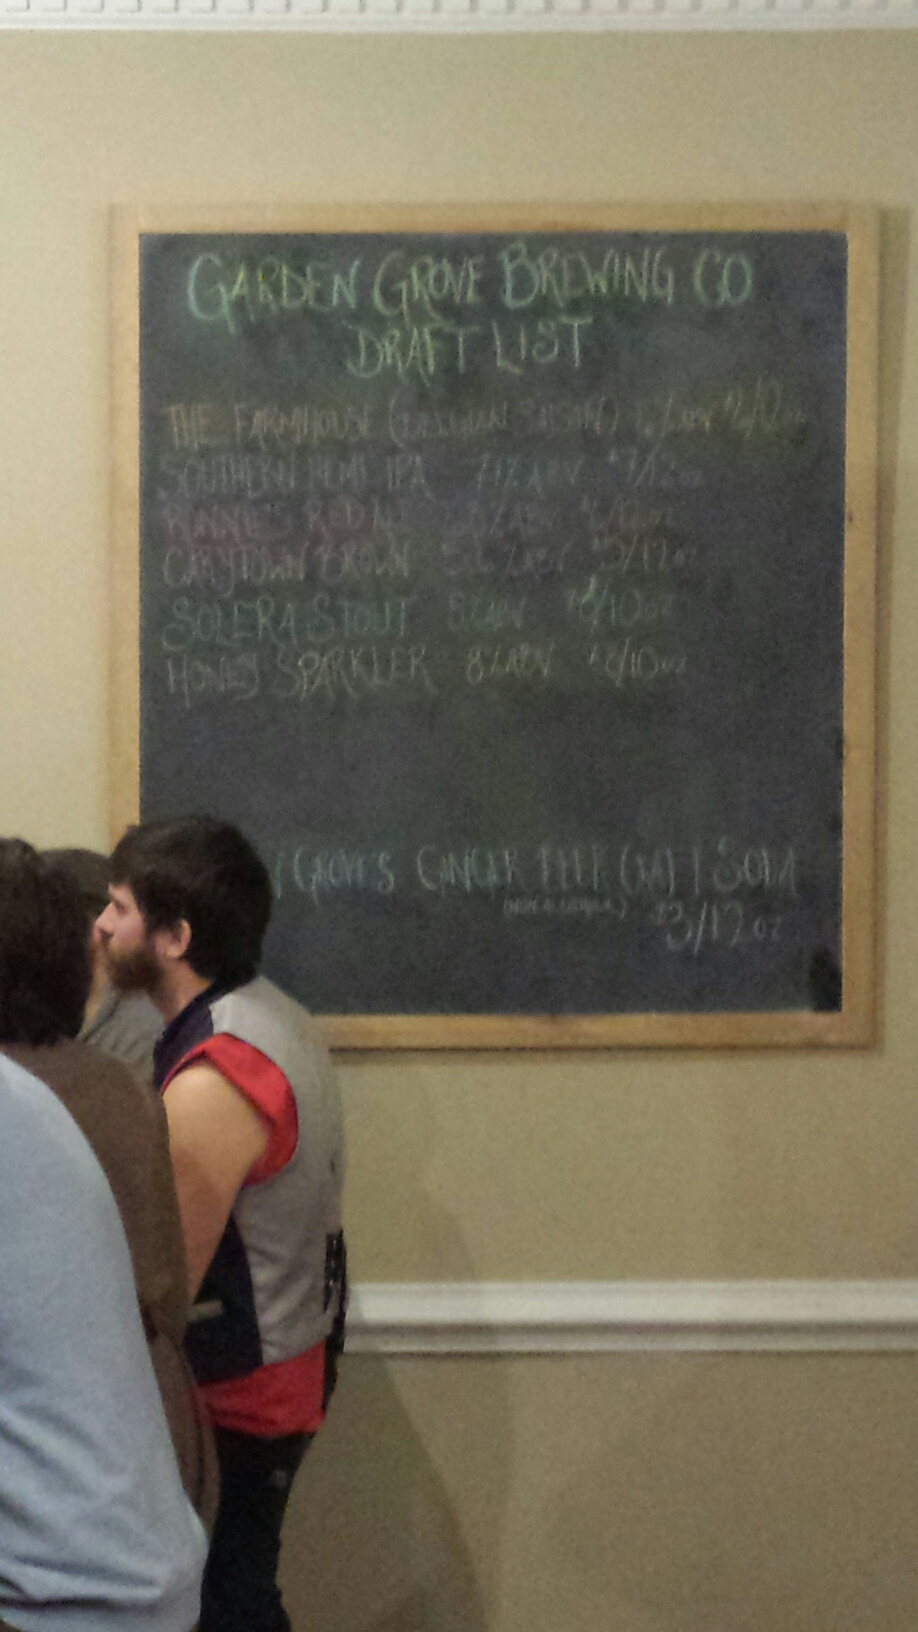 GARDEN GROVE BREWING CO
DRAFT LIST
THE FARMHOUSE (BELGIAN SAISON) % ABV
SOUTHERN HEMI IPA 7.1% ABV $7/12oz
RED ALE % ABV
CARYTOWN BROWN 5.6% ABV $5/12oz
SOLERA STOUT 5% ABV /10oz
HONEY SPARKLER 8% ABV $8/10oz
GROVE'S GINGER CRAFT SODA
$3/12oz